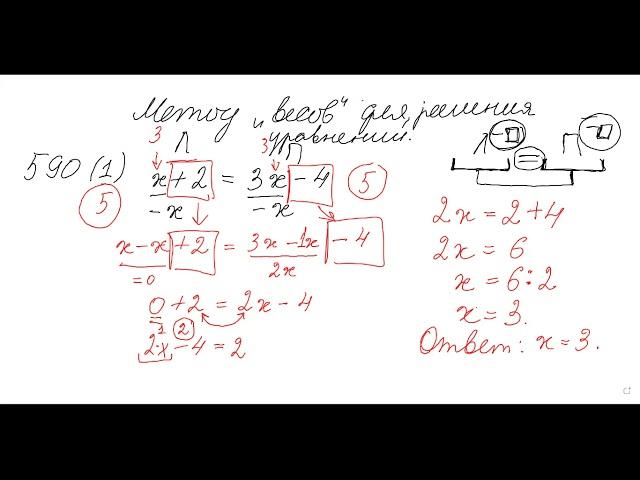 Метод "весов" для решения
уравнений.
3 Л 3 П
590 (1) x + 2 = 3x - 4
5 - x - x 5
x - x + 2 = 3x - 1x - 4
= 0 2x
0 + 2 = 2x - 4
1 2
2·x - 4 = 2
=
2x = 2 + 4
2x = 6
x = 6 : 2
x = 3.
Ответ: x = 3.